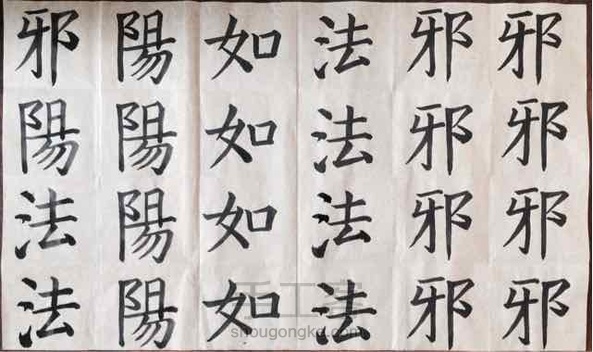 邪邪邪邪
邪邪邪邪
法法法法
如如如如
陽陽陽陽
邪陽法法
手工客
shougongke.com